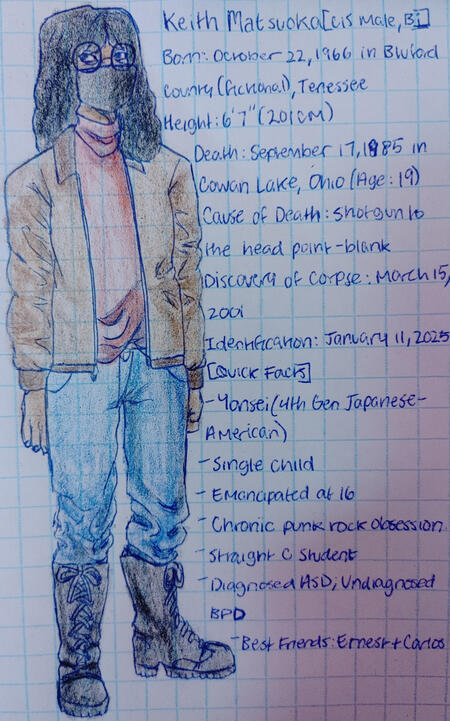 Keith Matsuoka[Cis Male, Bi]
Born: October 22, 1966 in Bluford
County (fictional), Tenessee
Height: 6'7" (201CM)
Death: September 17, 1985 in
Cowan Lake, Ohio (Age: 19)
Cause of Death: Shotgun to
the head point-blank
Discovery of Corpse: March 15,
2001
Identification: January 11, 2025
[Quick Facts]
- Yonsei (4th Gen Japanese-
American)
- Single Child
- Emancipated at 16
- Chronic punk rock obsession
- Straight C Student
- Diagnosed ASD, Undiagnosed
BPD
- Best Friends: Ernest + Carlos